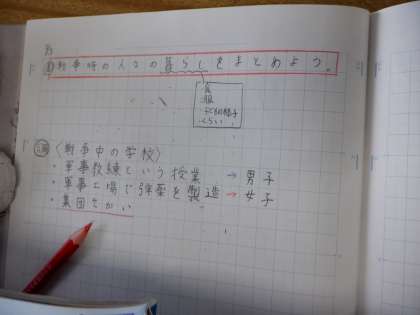 戦争時の人々の暮らしをまとめよう。
食
服
くらい
〈戦争中の学校〉
・軍事教練という授業 → 男子
・軍事工場で弾薬を製造 → 女子
・集団そかい